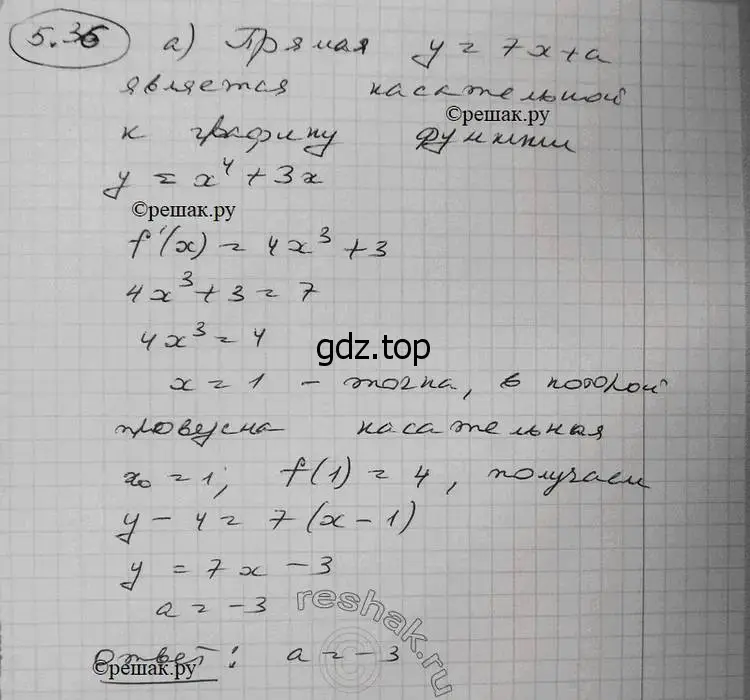 5.36 а) Прямая y = 7x + a
является касательной
©решак.ру
к графику функции
y = x⁴ + 3x
©решак.ру
f'(x) = 4x³ + 3
4x³ + 3 = 7
4x³ = 4
gdz.top
x = 1 - точка, в которой
проведена касательная
x₀ = 1; f(1) = 4, получаем
y - 4 = 7(x - 1)
y = 7x - 3
a = -3
reshak.ru
Ответ: a = -3
©решак.ру